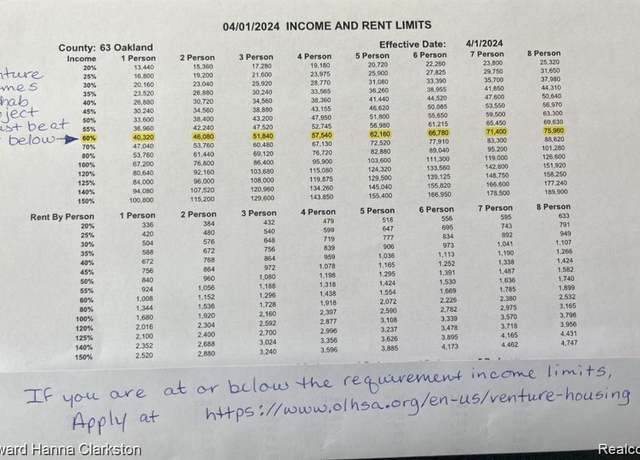 04/01/2024 INCOME AND RENT LIMITS
County: 63 Oakland Effective Date: 4/1/2024
Income 1 Person 2 Person 3 Person 4 Person 5 Person 6 Person 7 Person 8 Person
20% 13,440 15,360 17,280 19,180 20,720 22,260 23,800 25,320
25% 16,800 19,200 21,600 23,975 25,900 27,825 29,750 31,650
30% 20,160 23,040 25,920 28,770 31,080 33,390 35,700 37,980
35% 23,520 26,880 30,240 33,565 36,260 38,955 41,650 44,310
40% 26,880 30,720 34,560 38,360 41,440 44,520 47,600 50,640
45% 30,240 34,560 38,880 43,155 46,620 50,085 53,550 56,970
50% 33,600 38,400 43,200 47,950 51,800 55,650 59,500 63,300
55% 36,960 42,240 47,520 52,745 56,980 61,215 65,450 69,630
below → 60% 40,320 46,080 51,840 57,540 62,160 66,780 71,400 75,960
70% 47,040 53,760 60,480 67,130 72,520 77,910 83,300 88,620
80% 53,760 61,440 69,120 76,720 82,880 89,040 95,200 101,280
100% 67,200 76,800 86,400 95,900 103,600 111,300 119,000 126,600
120% 80,640 92,160 103,680 115,080 124,320 133,560 142,800 151,920
125% 84,000 96,000 108,000 119,875 129,500 139,125 148,750 158,250
140% 94,080 107,520 120,960 134,260 145,040 155,820 166,600 177,240
150% 100,800 115,200 129,600 143,850 155,400 166,950 178,500 189,900
Rent By Person 1 Person 2 Person 3 Person 4 Person 5 Person 6 Person 7 Person 8 Person
20% 336 384 432 479 518 556 595 633
25% 420 480 540 599 647 695 743 791
30% 504 576 648 719 777 834 892 949
35% 588 672 756 839 906 973 1,041 1,107
40% 672 768 864 959 1,036 1,113 1,190 1,266
45% 756 864 972 1,078 1,165 1,252 1,338 1,424
50% 840 960 1,080 1,198 1,295 1,391 1,487 1,582
55% 924 1,056 1,188 1,318 1,424 1,530 1,636 1,740
60% 1,008 1,152 1,296 1,438 1,554 1,669 1,785 1,899
80% 1,344 1,536 1,728 1,918 2,072 2,226 2,380 2,532
100% 1,680 1,920 2,160 2,397 2,590 2,782 2,975 3,165
120% 2,016 2,304 2,592 2,877 3,108 3,339 3,570 3,798
125% 2,100 2,400 2,700 2,996 3,237 3,478 3,718 3,956
140% 2,352 2,688 3,024 3,356 3,626 3,895 4,165 4,431
150% 2,520 2,880 3,240 3,596 3,885 4,173 4,462 4,747
If you are at or below the requirement income limits,
Apply at https://www.olhsa.org/en-us/venture-housing
ward Hanna Clarkston
Realco